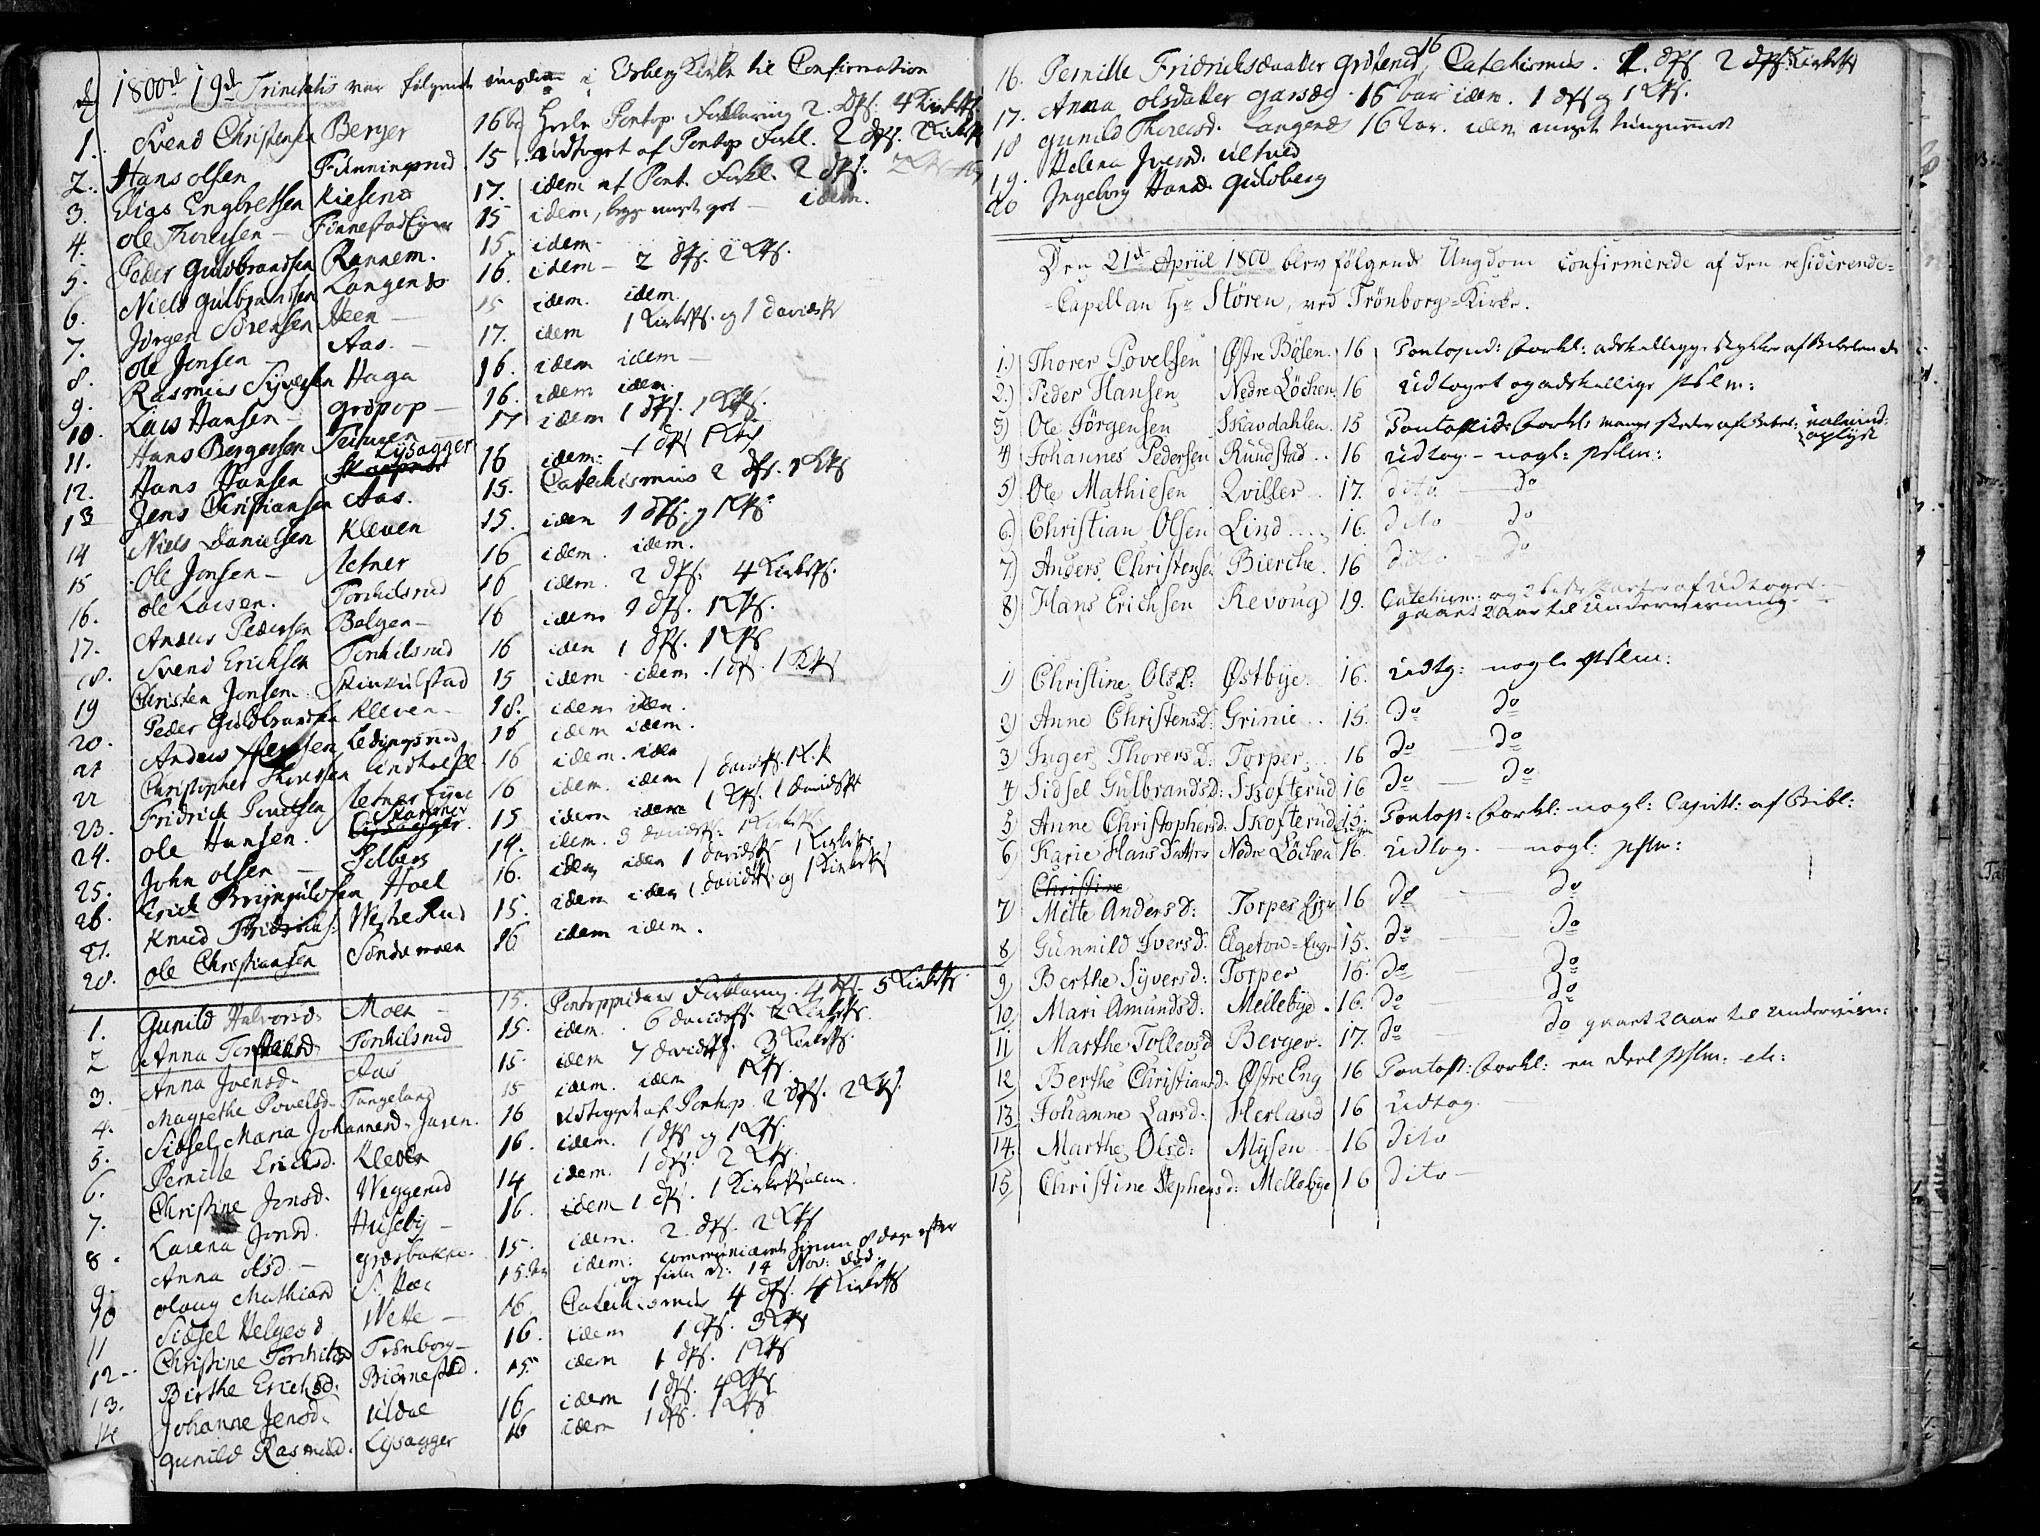 1800 d 19de Trinitatis var følgende ungdom i Edsberg Kirke til Confirmation
1. Svend Christensen Berger 16 heele Pontop. Forklaring 2. Dps: 4 Kirkeps.
2. Hans olsen Finningsrud 15. udtoget af Pontop Forkl. 2 dps. 2 Kirkeps
3. Elias Engbretsen Kieserud 17. idem af Pont. Forkl. 2 dps.
4. ole Thoresen - Finnestad Eyer 15 idem, begge meget got - idem.
5. Peder Guldbrandsen Rannem. 15. idem
6. Niels Gulbrandsen Langenes 16. idem - 2 dps. 2 Kps.
7. Jørgen Sørensen Heen - 15 idem. idem.
8. ole Jensen - Aas. - 17. idem 1 Kirkeps. og 1 davidsps
9. Rasmus Syversen Haga 16. idem idem -
10. Lars Hansen - gropop - 16. idem idem.
11. Hans Bergersen Teigen 17 idem 1 dps. 1 Kps.
12. Hans Hansen Lysagger 16 idem: 1 dps 1 Kps
13 Jens Christiansen Aas. 15. Catechismus 2 dps. 1 Kps
14 Niels Danielsen Kleven 15. idem 1 dps. og 1 Kps.
15 Ole Jonsen - Letner 16 idem. idem.
16. ole Larsen. Torkilsrud 16 idem. 2 dps. 4 Kirkeps.
17. Anders Pedersen Balgen - 16 idem 2 dps. 1 Kps.
18. Svend Erichsen Torkilsrud 16 idem 1 dps. 1 Kps
19 Christen Jonsen. Skinkulstad 15 idem - idem. 1 ps. 1 Kps
20. Peder Guldbrandsen Kleven - 18. idem iden.
21 Anders Ledingsrud 16 idem idem.
22 Christopher Thoresen Lindhol 16 idem. idem
23. Fridrich Letner Eyne 16 idem. idem 1 davidsps. 1 K.ps
24. ole Hansen. Skarpnes 15 idem idem 1 Kps. 1 davidsps
25. John olsen - Solberg 19. idem. 3 davidsps. 1 Kirkeps.
26. Erick Brynjulvsen Hoel 16. idem idem 1 davidsps 1 Kirkeps.
27. Knud Fridrichs: Westerud 15. idem idem 1 davidsps. og 1 Kirkeps
28. ole Christiansen Søndemoen 16 idem idem.
1. Gunild Halvorsd. Moen - 15. Pontoppidans Forklaring. 4 dps. 5 Kirkeps.
2 Anna Torstensd Torkilsrud 15. idem. 6 davidsps. 2 Kirkeps.
3. Anna Ivensd. Aas 15. idem 7 davidsps. 3 Kirkeps.
4. Magrethe Povelsd. Tangeland 15 idem. idem 1 Kps.
5. Sidsel Maria Johannesd. Juren. 16 udtoget af Pontop. 2 dps. 2 Kps.
6. Pernille Ericksd. Kleven 16. idem. 1 dps og 1 Kps.
7. Christine Jonsd. Weggerud 14 idem. 1 dps. 2 Kps.
8. Larena Jonsd. Huseby - 16. idem 1 dps. 1 Kirkepsalm.
9. Anna olsd. - græsbakke 15. idem. 2. dps. 2 Kps
10 olaug Mathiasd 15. idem: communicerede hiemme 8 dage efter
og siden d: 14 Nov: død.
11 Sidsel Helgesd Wette - 16. Catechismus 4 dps. 4 Kirkeps
12 - Christine Torkilsd Trønborg - 16. idem 1 dps. 3 Kps
13. Birthe Ericksd. Biørnestad. 15. idem 1 dps. 1 Kps
14 Johanne Jensd. Ildue 16 idem 1 dps. 4 Kps.
Gunild Rasmusd. Lysagger 16 idem 1 dps. 1 Kps
16. Pernille Fridrichsdaatter Grøterud, 16 Catechismus. 1. dps. 2 dps. Kirkeps
17. Anna olsdatter garseg - 16 aar idem. 1 dps og 1 Kps.
18 gunild Thoresd. Langenes 16 aar. idem meget
19. Helena Ivensd. Ultved
20 Ingeborg Hansd. Guldberg
Den 21de Apriil 1800 blev følgende Ungdom confirmerede af den residerende=
=Capellan Hr Støren, ved Trönborg=Kirke.
1.) Thorer Povelsen Østre Bøsen. 16 Pontopid: Forkl: adskellige Stykker af Bibelen
2.) Peder Hansen Nedre Löchen 16 udtoget og adskellige pslm:
3) Ole Jørgensen Skavdahlen. 15 Pontoppid: Forkl: mange steder af Bibel: ualmind: oplyst
4) Johannes Pedersen Rundstad .. 16 udtog. - nogl: pslm:
5) Ole Mathiesen Qviller 17. dito - do
6.) Christian Olsen Lind .... 16. dito do
7.) Anders Christensen Bierche. 16 dito - do
8) Hans Erichsen Revoug 19. Catechism: og 2 bette Parter af udtoget. -
gaaet 2 Aar til Underviisning. -
1) Christine Olsd: Østbye. 16. udtog: nogle pslm:
2) Anne Christensd: Grimie .. 15. do do
3) Inger Thorersd: Torper. 16 do - do
4 Sidsel Gulbrandsd: Skofterud 16 do - do
5) Anne Christophersd. Skofterud 15. Pontop: Forkl: nogl: Capitl: af Bibl:
6) Karie Hansdatter Nedre Löchen 16. udtog. - nogl: pslm:
Christine
7) Mette Andersd: Torper Eyer 16 do - do
8) Gunnild Iversd. Egeton=Engen 15. do - do
9) Berthe Syversd: Torper 16. do - do
10) Mari Amundsd. Mellebye. 16. do - do
11 Marthe Tollevsd Berger. 17. do - do gaaet 2 Aar til Underviisn:
12) Berthe Christiansd: Østre Eng 16 Pontop: Forkl: en Deel pslm: etc:
13. Johanne Larsd. Herland 16 Udtog. -
14. Marthe Olsd: Mysen 16 dito
15) Christine Stephensd: Mellebye 16 dito -